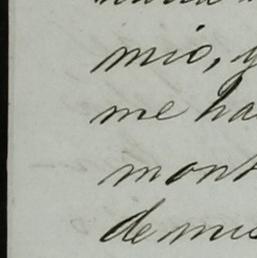 mio, y
me ha
mont
de mis